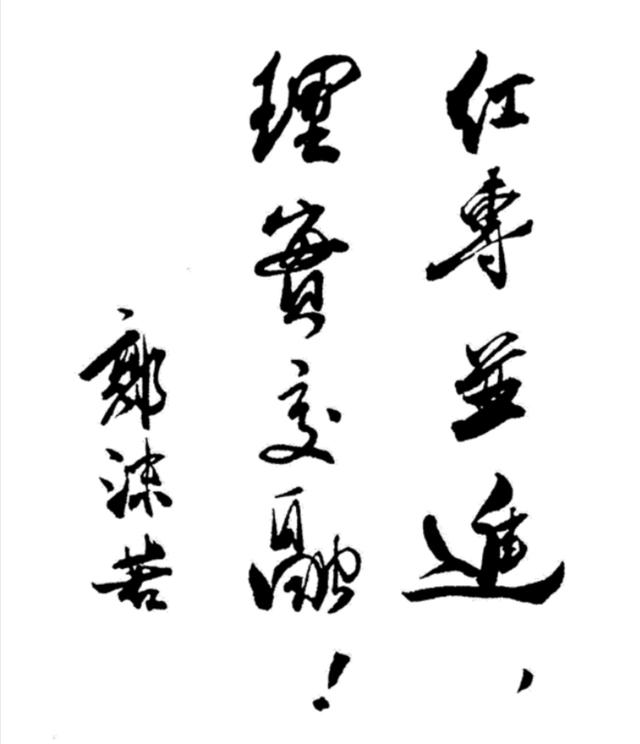 紅專並進，
理實交融！
郭沫若